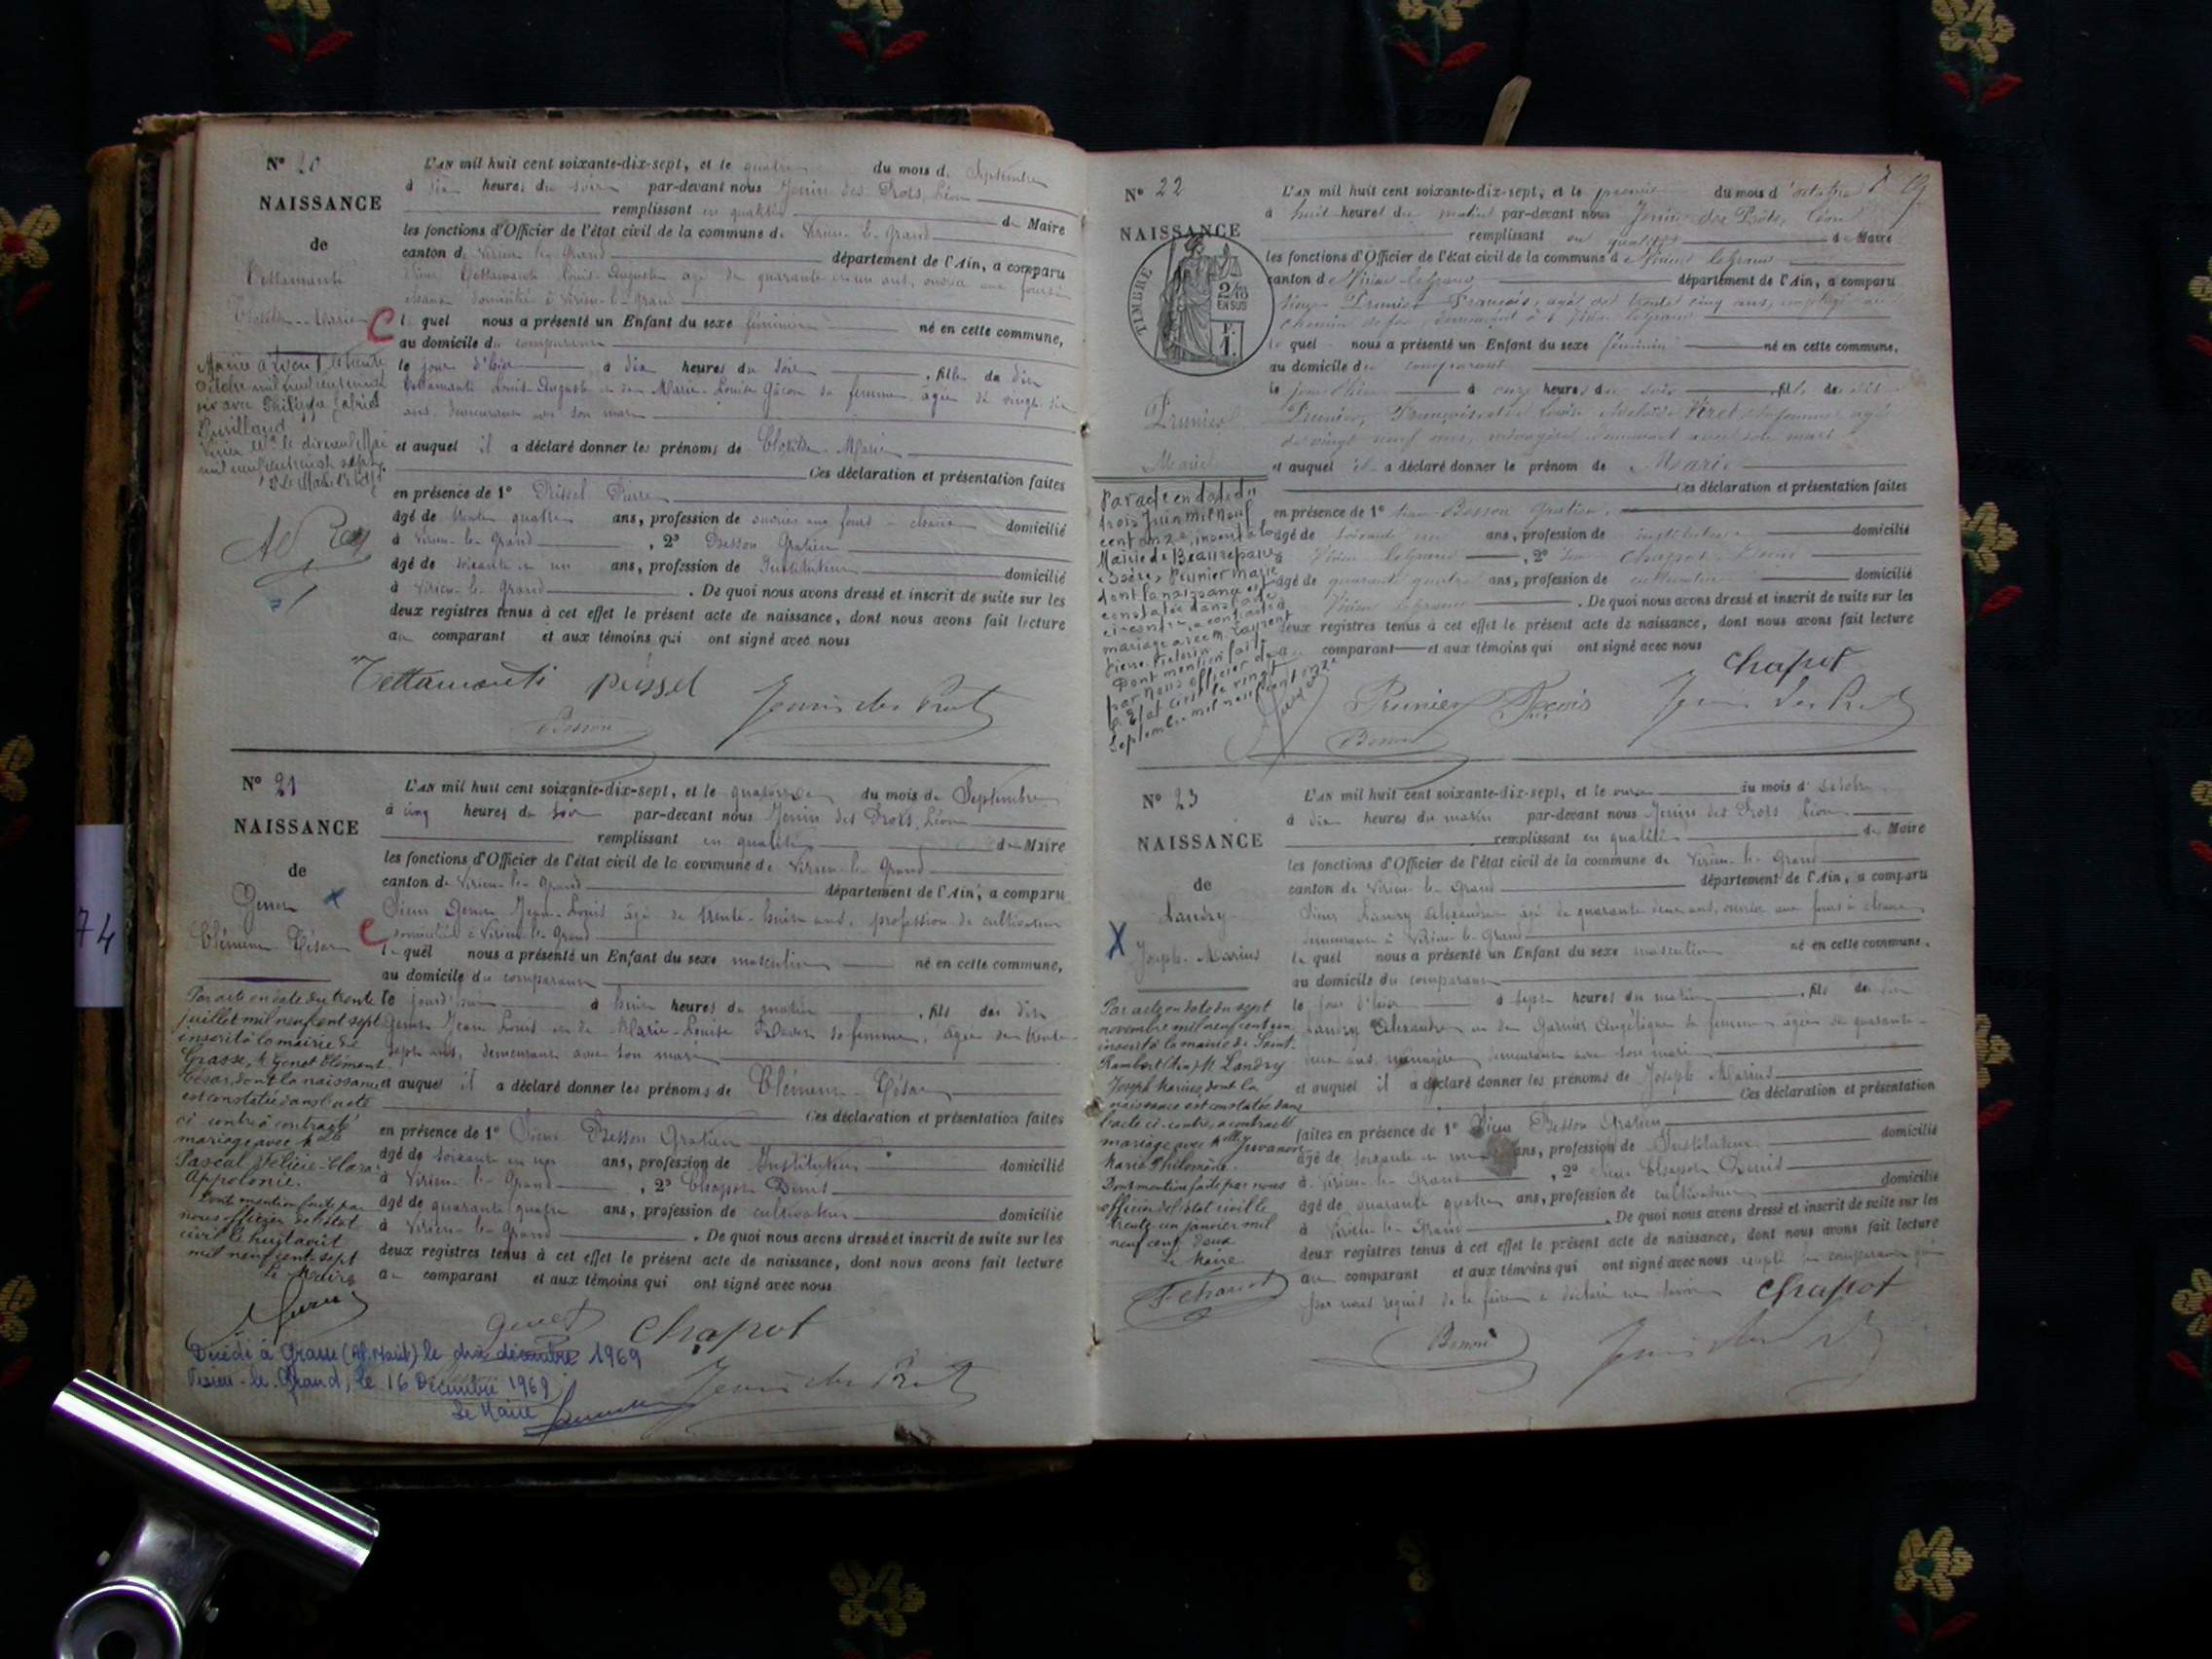 N° 20
NAISSANCE
de
Tettamanti
Clotilde-Marie
L'AN mil huit cent soixante-dix-sept, et le quatre du mois de Septembre
à dix heures du soir par-devant nous Jenin des Prots, Léon
remplissant en qualité de Maire
les fonctions d'Officier de l'état civil de la commune de Virieu-le-Grand
canton de Virieu-le-Grand département de l'Ain, a comparu
Sieur Tettamanti Louis-Auguste âgé de quarante ans, ouvrier aux fours à
chaux domicilié à Virieu-le-Grand
lequel nous a présenté un Enfant du sexe féminin né en cette commune,
au domicile du comparant
le jour d'hier à dix heures du soir, fille du dit
Tettamanti Louis-Auguste et de Marie-Louise Gâcon sa femme, âgée de vingt-six
ans, demeurant avec son mari
et auquel il a déclaré donner les prénoms de Clotilde-Marie
Ces déclaration et présentation faites
en présence de 1° Pierre
âgé de trente quatre ans, profession de ouvrier aux fours à chaux domicilié
à Virieu-le-Grand, 2° Besson Gratien
âgé de soixante et un ans, profession de Instituteur domicilié
à Virieu-le-Grand. De quoi nous avons dressé et inscrit de suite sur les
deux registres tenus à cet effet le présent acte de naissance, dont nous avons fait lecture
au comparant et aux témoins qui ont signé avec nous
Mariée à Lyon 1 le trente
octobre mil neuf cent vingt
six avec Philippe Gabriel
le dix neuf Mai
mil neuf cent vingt sept
Tettamanti Besson Jenin des Prots
N° 21
NAISSANCE
de
Genet
Clément-César
L'AN mil huit cent soixante-dix-sept, et le quatorze du mois de Septembre
à cinq heures du soir par-devant nous Jenin des Prots, Léon
remplissant en qualité de Maire
les fonctions d'Officier de l'état civil de la commune de Virieu-le-Grand
canton de Virieu-le-Grand département de l'Ain, a comparu
Sieur Genet Jean-Louis âgé de trente-huit ans, profession de cultivateur
domicilié à Virieu-le-Grand
lequel nous a présenté un Enfant du sexe masculin né en cette commune,
au domicile du comparant
le jourd'hui à huit heures du matin, fils du dit
Genet Jean Louis et de Marie-Louise sa femme, âgée de trente-
sept ans, demeurant avec son mari
et auquel il a déclaré donner les prénoms de Clément-César
Ces déclaration et présentation faites
en présence de 1° Sieur Besson Gratien
âgé de soixante et un ans, profession de Instituteur domicilié
à Virieu-le-Grand, 2° Chapot Denis
âgé de quarante quatre ans, profession de cultivateur domicilié
à Virieu-le-Grand. De quoi nous avons dressé et inscrit de suite sur les
deux registres tenus à cet effet le présent acte de naissance, dont nous avons fait lecture
au comparant et aux témoins qui ont signé avec nous
Par acte en date du trente
juillet mil neuf cent sept
inscrit à la mairie de
Grasse, M Genet Clément
César, dont la naissance
est constatée dans l'acte
ci-contre a contracté
mariage avec Mlle
Pascal Félicie-Clara
Appolonie.
Dont mention faite par
nous officier de l'état
civil le huit août
mil neuf cent sept
Le Maire
Genet Chapot
Jenin des Prots
Décédé à Grasse (Alp. Marit) le dix décembre 1969
Virieu-le-Grand, le 16 Décembre 1969
Le Maire
74
N° 22
NAISSANCE
TIMBRE
2/10
EN SUS
F.
1.
Prunier
Marie
L'AN mil huit cent soixante-dix-sept, et le premier du mois d'octobre
à huit heures du matin par-devant nous Jenin des Prots, Léon
remplissant en qualité de Maire
les fonctions d'Officier de l'état civil de la commune de Virieu le grand
canton de Virieu-le-grand département de l'Ain, a comparu
Sieur Prunier François, âgé de trente cinq ans, employé au
chemin de fer demeurant à Virieu le grand
lequel nous a présenté un Enfant du sexe féminin né en cette commune,
au domicile du comparant
le jour d'hier à onze heures du soir, fille du dit
Prunier, François, et de Louise Viret, sa femme âgée
de vingt neuf ans, ménagère demeurant avec son mari
et auquel il a déclaré donner le prénom de Marie
Ces déclaration et présentation faites
en présence de 1° sieur Besson Gratien
âgé de soixante un ans, profession de instituteur domicilié
Virieu le grand, 2° Sr Chapot Denis
âgé de quarante quatre ans, profession de cultivateur domicilié
Virieu le grand. De quoi nous avons dressé et inscrit de suite sur les
deux registres tenus à cet effet le présent acte de naissance, dont nous avons fait lecture
au comparant et aux témoins qui ont signé avec nous
Par acte en date du
trois Juin mil neuf
cent onze, inscrit à la
Mairie de Beaurepaire
(Isère) Prunier Marie
dont la naissance est
constatée dans l'acte
ci-contre, a contracté
mariage avec M. Laurent
Pierre
Dont mention faite
par nous officier de
l'Etat civil le vingt
Septembre mil neuf cent onze
Chapot
Prunier Fcois Jenin des Prots
Besson
N° 23
NAISSANCE
de
Landry
Joseph-Marius
L'AN mil huit cent soixante-dix-sept, et le onze du mois d'octobre
à dix heures du matin par-devant nous Jenin des Prots Léon
remplissant en qualité de Maire
les fonctions d'Officier de l'état civil de la commune de Virieu-le-Grand
canton de Virieu-le-Grand département de l'Ain, a comparu
Sieur Landry Alexandre âgé de quarante deux ans, ouvrier aux fours à chaux
demeurant à Virieu-le-Grand
lequel nous a présenté un Enfant du sexe masculin né en cette commune,
au domicile du comparant
le jour d'hier à sept heures du matin, fils du dit
Landry Alexandre et de Garnier Angélique sa femme âgée de quarante-
deux ans, ménagère demeurant avec son mari
et auquel il a déclaré donner les prénoms de Joseph Marius
Ces déclaration et présentation
faites en présence de 1° Sieur Besson Gratien
âgé de soixante et un ans, profession de Instituteur domicilié
à Virieu-le-Grand, 2° Sieur Chapot Denis
âgé de quarante quatre ans, profession de cultivateur domicilié
à Virieu-le-Grand. De quoi nous avons dressé et inscrit de suite sur les
deux registres tenus à cet effet le présent acte de naissance, dont nous avons fait lecture
au comparant et aux témoins qui ont signé avec nous excepté le comparant qui
par nous requis de le faire a déclaré ne savoir
Par acte en date du sept
novembre mil neuf cent un
inscrit à la mairie de Saint-
Rambert (Ain) M. Landry
Joseph Marius, dont la
naissance est constatée dans
l'acte ci-contre, a contracté
mariage avec Mlle
Marie Philomène.
Dont mention faite par nous
officier de l'état civil le
trente un janvier mil
neuf cent deux
Le Maire
Chapot
Besson Jenin des Prots